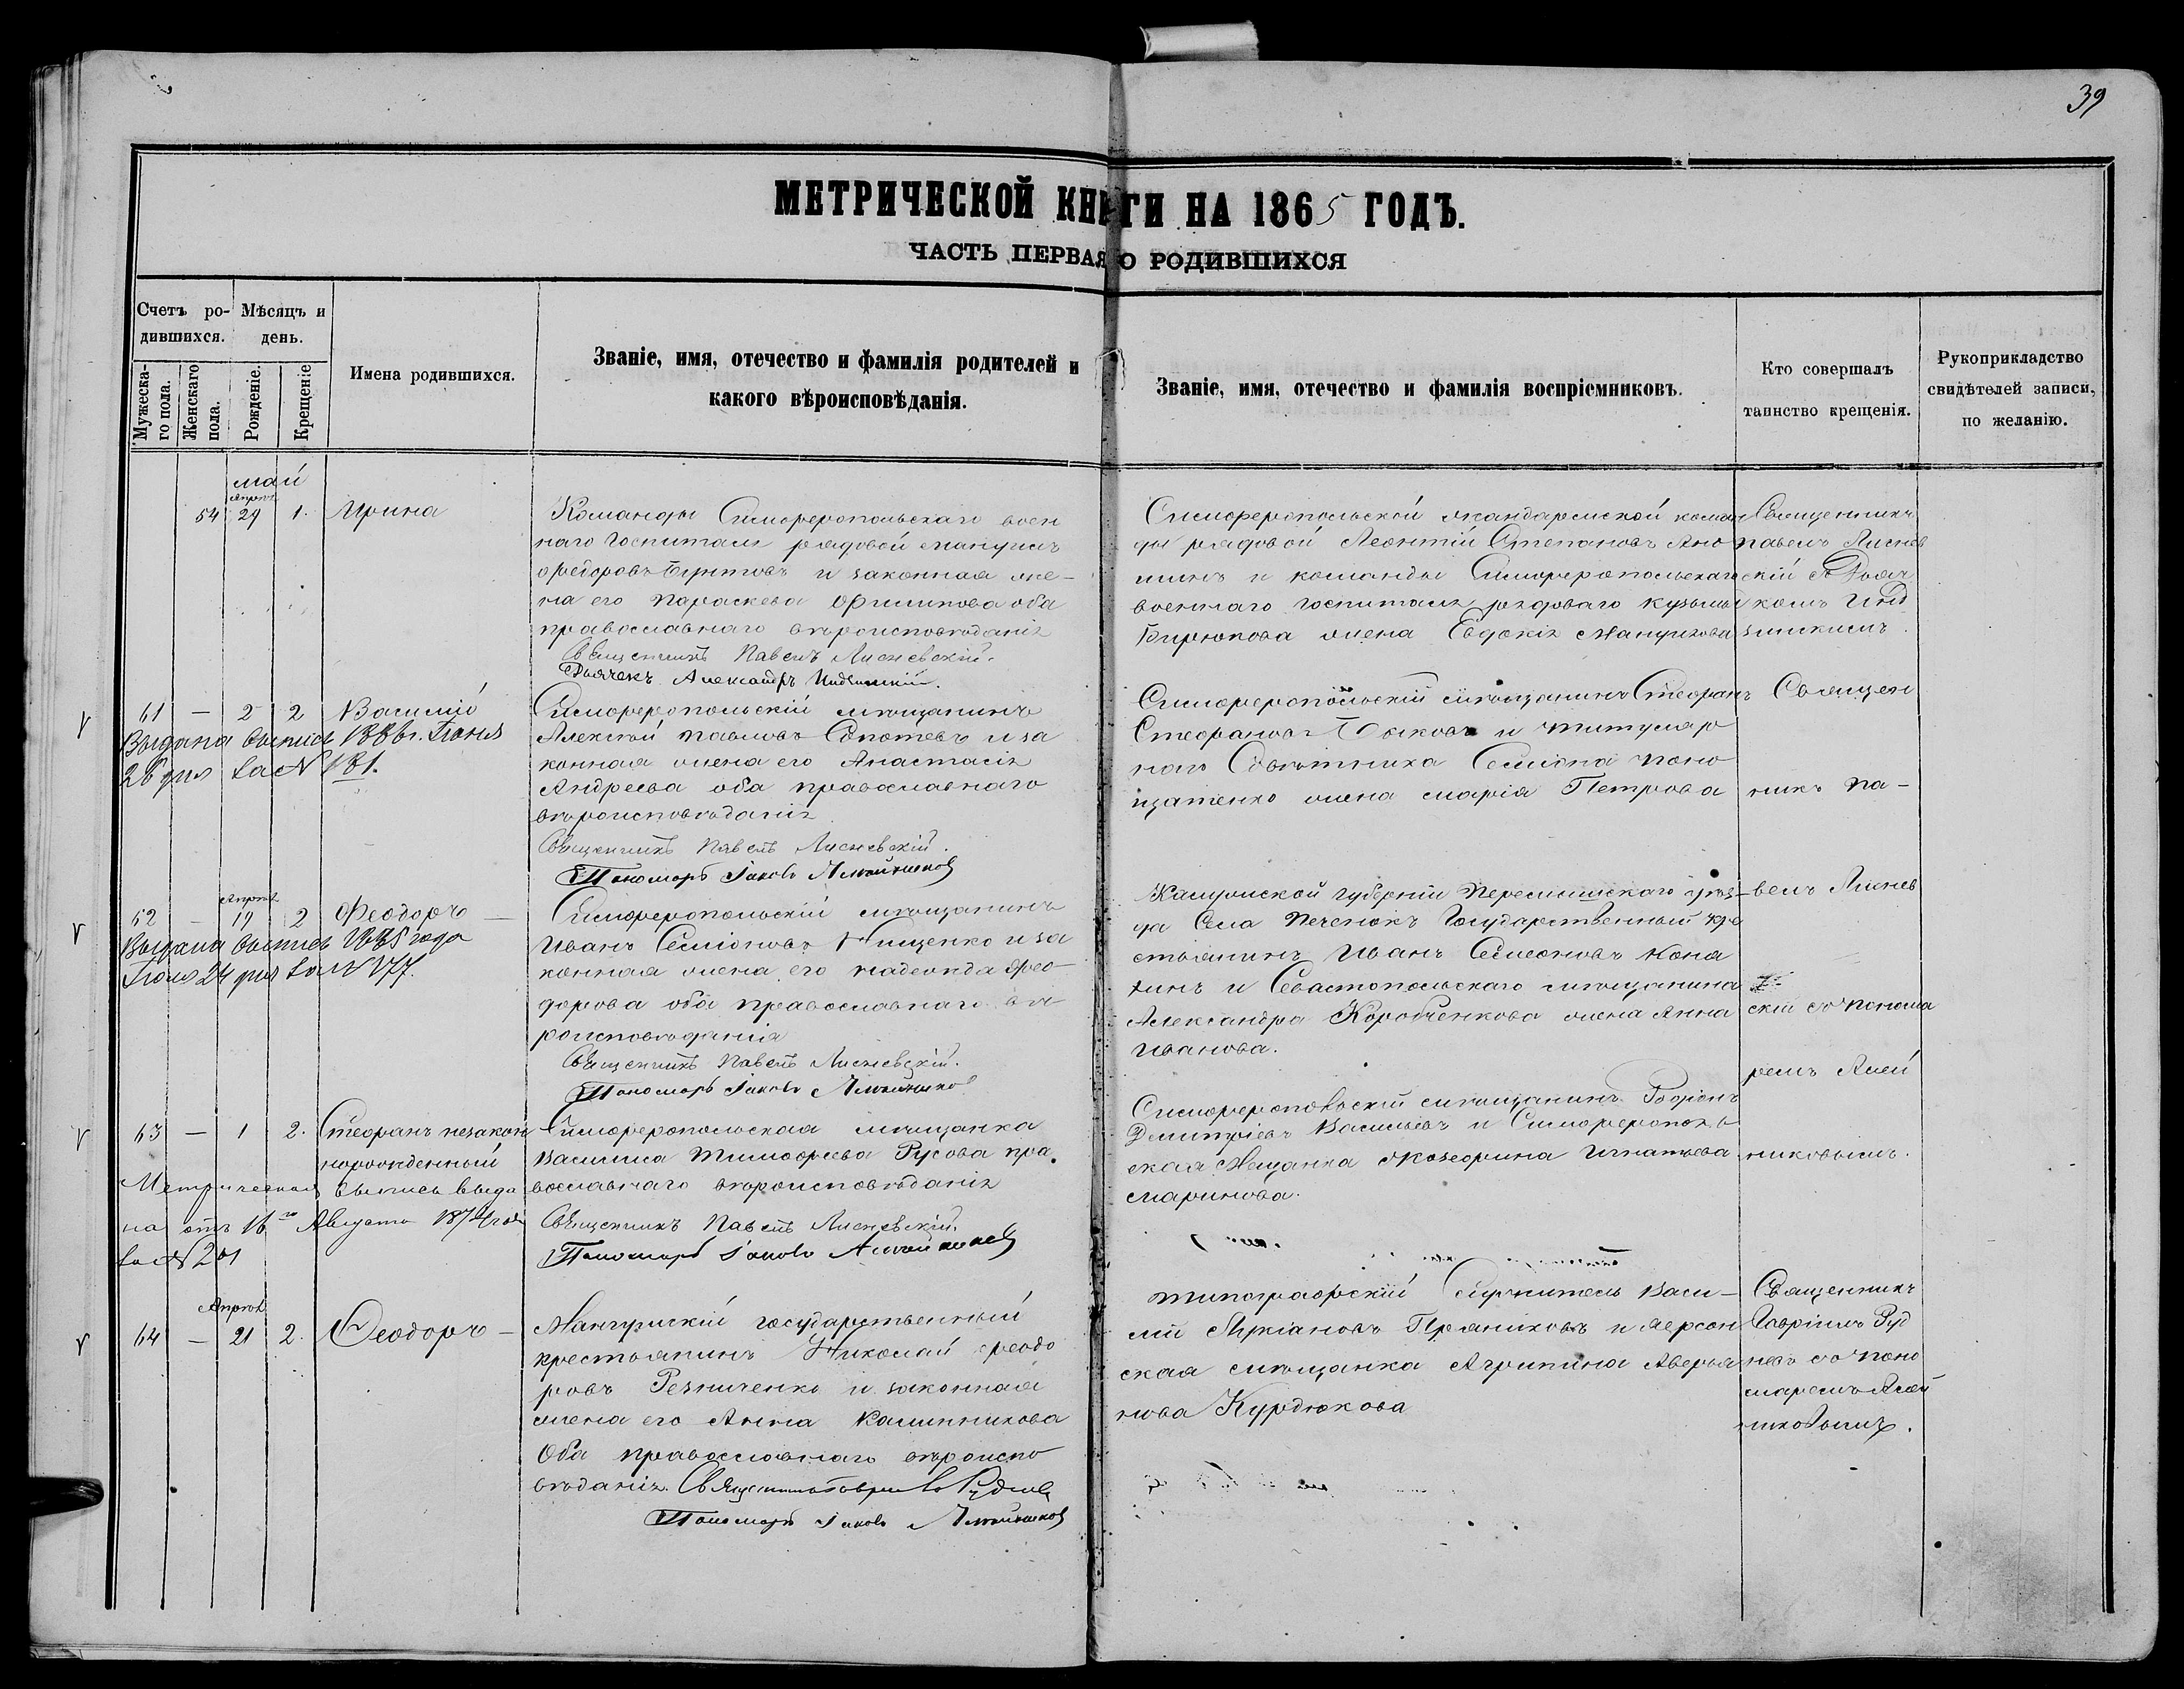 39
МЕТРИЧЕСКОЙ КНИГИ НА 1865 ГОДЪ.
ЧАСТЬ ПЕРВАЯ О РОДИВШИХСЯ
Счетъ ро-
дившихся.
Мѣсяцъ и
день.
Мужеска-
го пола.
Женскаго
пола.
Рожденіе.
Крещеніе
Имена родившихся.
Званіе, имя, отечество и фамилія родителей и
какого вѣроисповѣданія.
Званіе, имя, отечество и фамилія воспріемниковъ.
Кто совершалъ
таинство крещенія.
Рукоприкладство
свидѣтелей записи,
по желанію.
май
Апрѣл
54 29 1. Ирина
Команды Симферопольскаго воен
наго госпиталя рядовой
и законная же-
на его Параскева Филипова оба
православнаго вѣроисповѣданія
Священникъ Павелъ Лисневскій.
Дьячекъ Александръ
Симферопольской жандармской коман
ды рядовой Леонтій Степановъ Ано
шинъ и команды Симферопольскаго
военнаго госпиталя рядоваго Кузьмы
Бирюкова жена Евдокія
Священникъ
Павелъ Лиснев
скій съ Дьяч
комъ Инд
61 — 2 2 Василій
Выдана выпись 1886 г. Іюня
26 дня за № 181.
Симферопольскій мѣщанинъ
Алексѣй Павловъ и за
конная жена его Анастасія
Андреева оба православнаго
вѣроисповѣданія
Священникъ Павелъ Лисневскій.
Пономарь Іаковъ Алейниковъ
Симферопольскій мѣщанинъ Стефанъ
Стефановъ Быковъ и титуляр
наго Совѣтника Семіона Поно
жена Марія Петрова
Священ
никъ Па-
Апрѣл
62 — 19 2 Феодоръ —
Выдана выпись 1885 года
Іюня 24 дня за № 177.
Симферопольскій мѣщанинъ
Иванъ Семіоновъ Нищенко и за
конная жена его Надежда Фео-
дорова оба православнаго вѣ-
роисповѣданія
Священникъ Павелъ Лисневскій.
Пономарь Іаковъ Алейниковъ
Калужской губерніи Перемышскаго уѣз-
да Села Государственный кре
стьянинъ Иванъ Семеоновъ
и Севастопольскаго мѣщанина
Александра Коробченкова жена Анна
Иванова.
велъ Лиснев
скій съ понома
ремъ Алей
63 — 1 2. Стефанъ незакон
норожденный
Метрическая выпись выда
на отъ 16го Августа 1874 года
за № 201
Симферопольская мѣщанка
Василиса Тимофеева Русова пра
вославнаго вѣроисповѣданія
Священникъ Павелъ Лисневскій.
Пономарь Іаковъ Алейниковъ
Симферопольскій мѣщанинъ Родіонъ
Димитріевъ Васильевъ и Симферополь
ская Мещанка Игнатьева
Маринова.
никовымъ.
Апрѣл
64 — 21 2. Феодоръ —
Мангушскій государственный
крестьянинъ Николай Феодо
ровъ Резниченко и законная
жена его Анна Калинникова
Оба православнаго вѣроиспо
вѣданія. Священникъ Гавріилъ Руднев
Пономарь Іаковъ Алейниковъ
Типографскій Служитель Васи-
лій Лукіановъ Пряниковъ и Херсон
ская мѣщанка Агрипина Аверья
нова Курдюкова
Священникъ
Гавріилъ Руд
невъ съ поно
маремъ Алей
никовымъ.